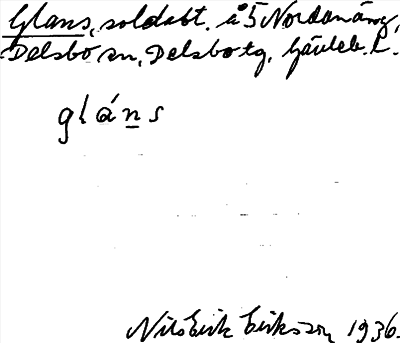 Glans, soldabt. å 5 Nordanäng,
Delsbo sn, Delsbo tg, Gävleb. L.
gláns
Nils Erik Eriksson 1936.